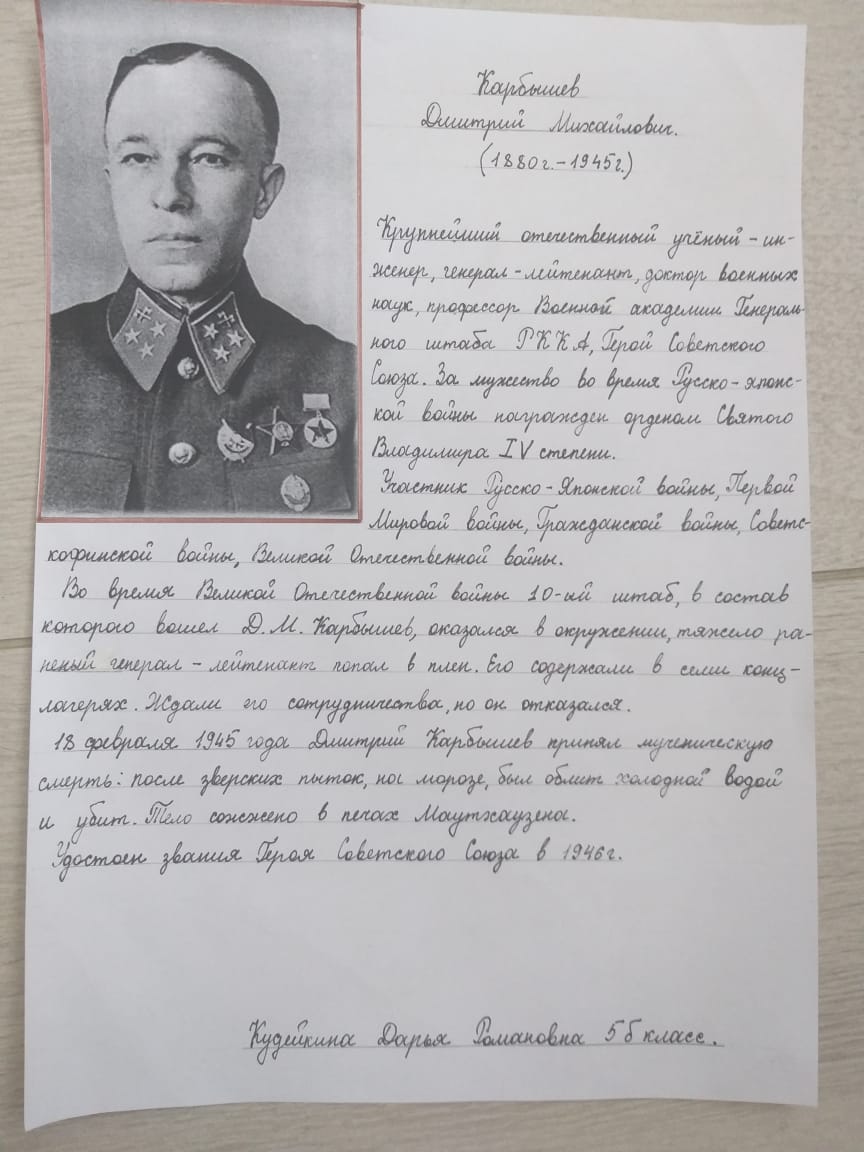 Карбышев
Дмитрий Михайлович.
(1880г.-1945г.)
Крупнейший отечественный учёный-ин-
женер, генерал-лейтенант, доктор военных
наук, профессор Военной академии Генераль-
ного штаба РККА, Герой Советского
Союза. За мужество во время Русско-японс-
кой войны награжден орденом Святого
Владимира IV степени.
Участник Русско-Японской войны, Первой
Мировой войны, Гражданской войны, Советс-
кофинской войны, Великой Отечественной войны.
Во время Великой Отечественной войны 10-ый штаб, в состав
которого вошел Д.М. Карбышев, оказался в окружении, тяжело ра-
неный генерал-лейтенант попал в плен. Его содержали в семи конц-
лагерях. Ждали его сотрудничества, но он отказался.
18 февраля 1945 года Дмитрий Карбышев принял мученическую
смерть: после зверских пыток, на морозе, был облит холодной водой
и убит. Тело сожжено в печах Маутхаузена.
Удостоен звания Героя Советского Союза в 1946г.
Кудейкина Дарья Романовна 5б класс.